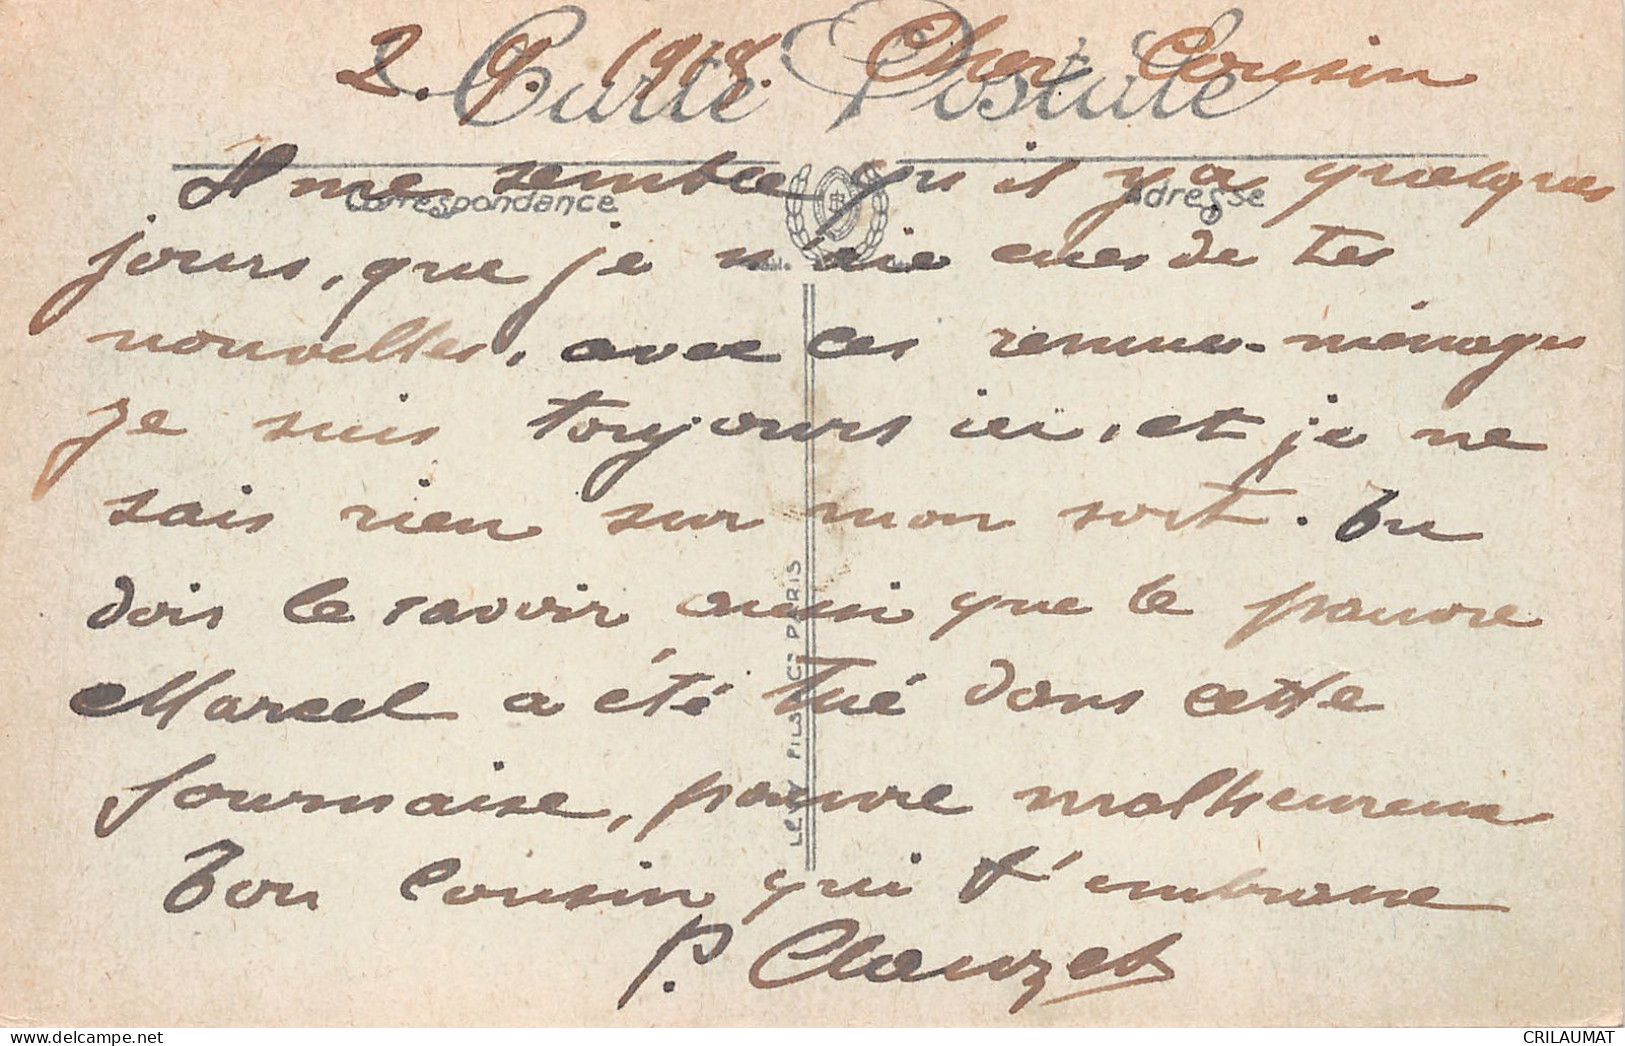 Carte Postale
2. 9. 1918. Cher Cousin
Correspondance
Adresse
Il me semble qu'il y a quelques
jours, que je n'aie eues de tes
nouvelles, avec ces remue-ménages
je suis toujours ici, et je ne
sais rien sur mon sort. Tu
dois le savoir aussi que le pauvre
Marcel a été tué dans cette
fournaise, pauvre malheureux
Ton Cousin qui t'embrasse
P. Clauzet
LEVY FILS & Cie PARIS
CRILAUMAT